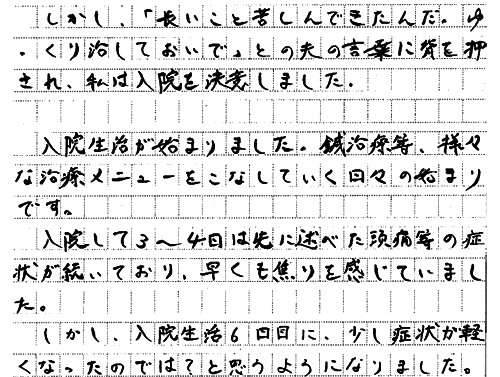 しかし、「長いこと苦しんできたんだ。ゆ
っくり治しておいで」との夫の言葉に背を押
され、私は入院を決意しました。
入院生活が始まりました。鍼治療等、様々
な治療メニューをこなしていく日々の始まり
です。
入院して3〜4日は先に述べた頭痛等の症
状が続いており、早くも焦りを感じていまし
た。
しかし、入院生活6日目に、少し症状が軽
くなったのでは?と思うようになりました。